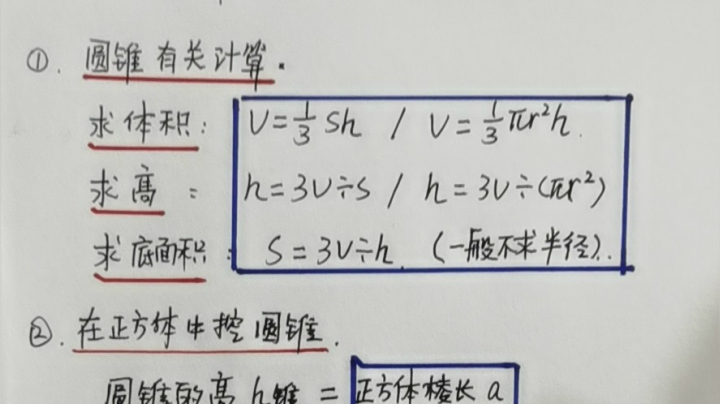 ①. 圆锥有关计算.
求体积: V=1/3 Sh / V=1/3 πr²h.
求高: h=3V÷S / h=3V÷(πr²)
求底面积: S=3V÷h. (一般不求半径).
②. 在正方体中挖圆锥.
圆锥的高 h锥 = 正方体棱长 a